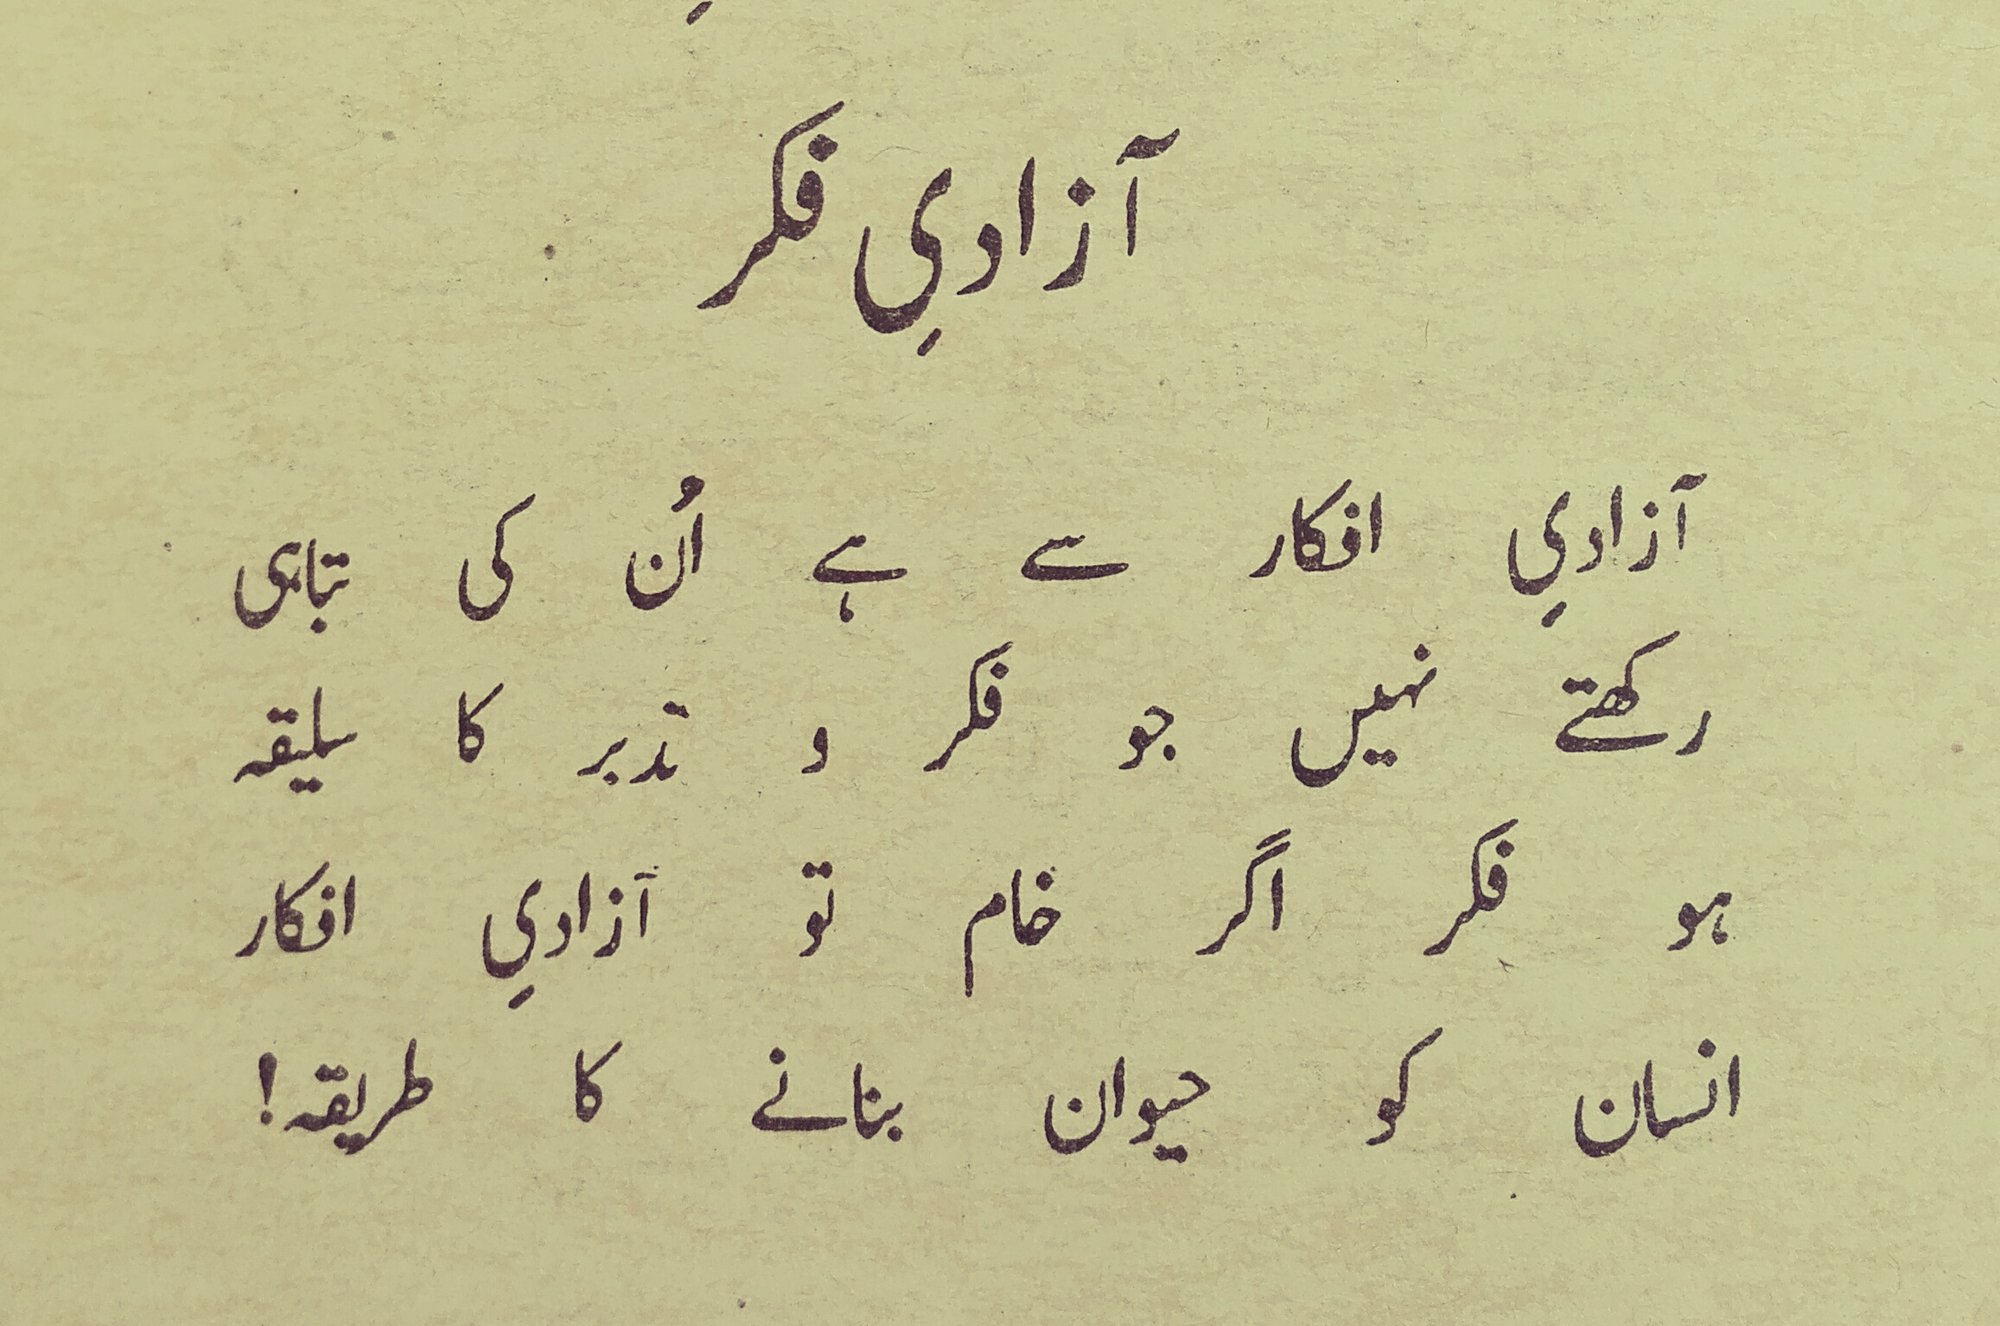 آزادیِ فکر
آزادیِ افکار سے ہے اُن کی تباہی
رکھتے نہیں جو فکر و تدبر کا سلیقہ
ہو فکر اگر خام تو آزادیِ افکار
انسان کو حیوان بنانے کا طریقہ!